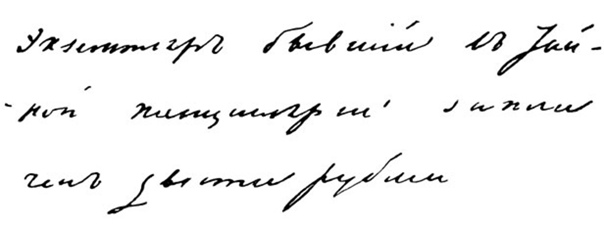 Экземпляръ бывшій въ Тай-
-ной канцелярии запла
ченъ двести рубли